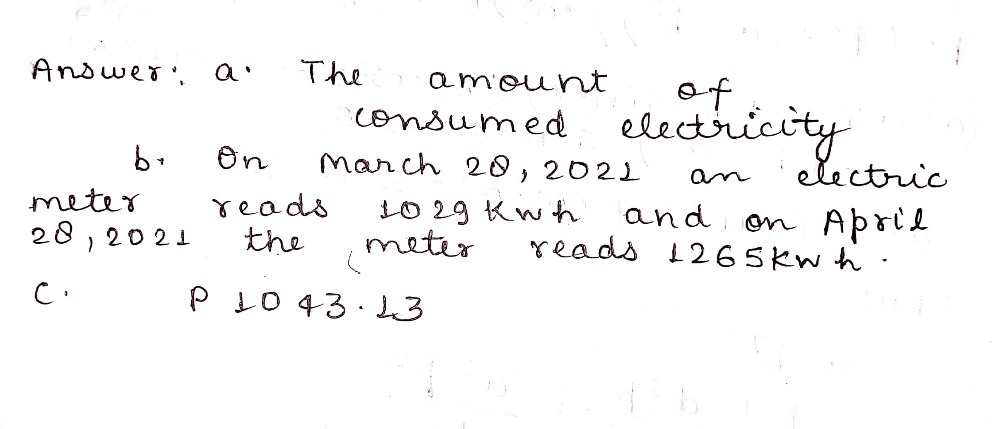 Answer:, a. The amount of
consumed electricity
b. On March 28, 2021 an electric
meter reads 1029 Kwh and on April
28, 2021 the meter reads 1265kwh.
C. P 1043.13